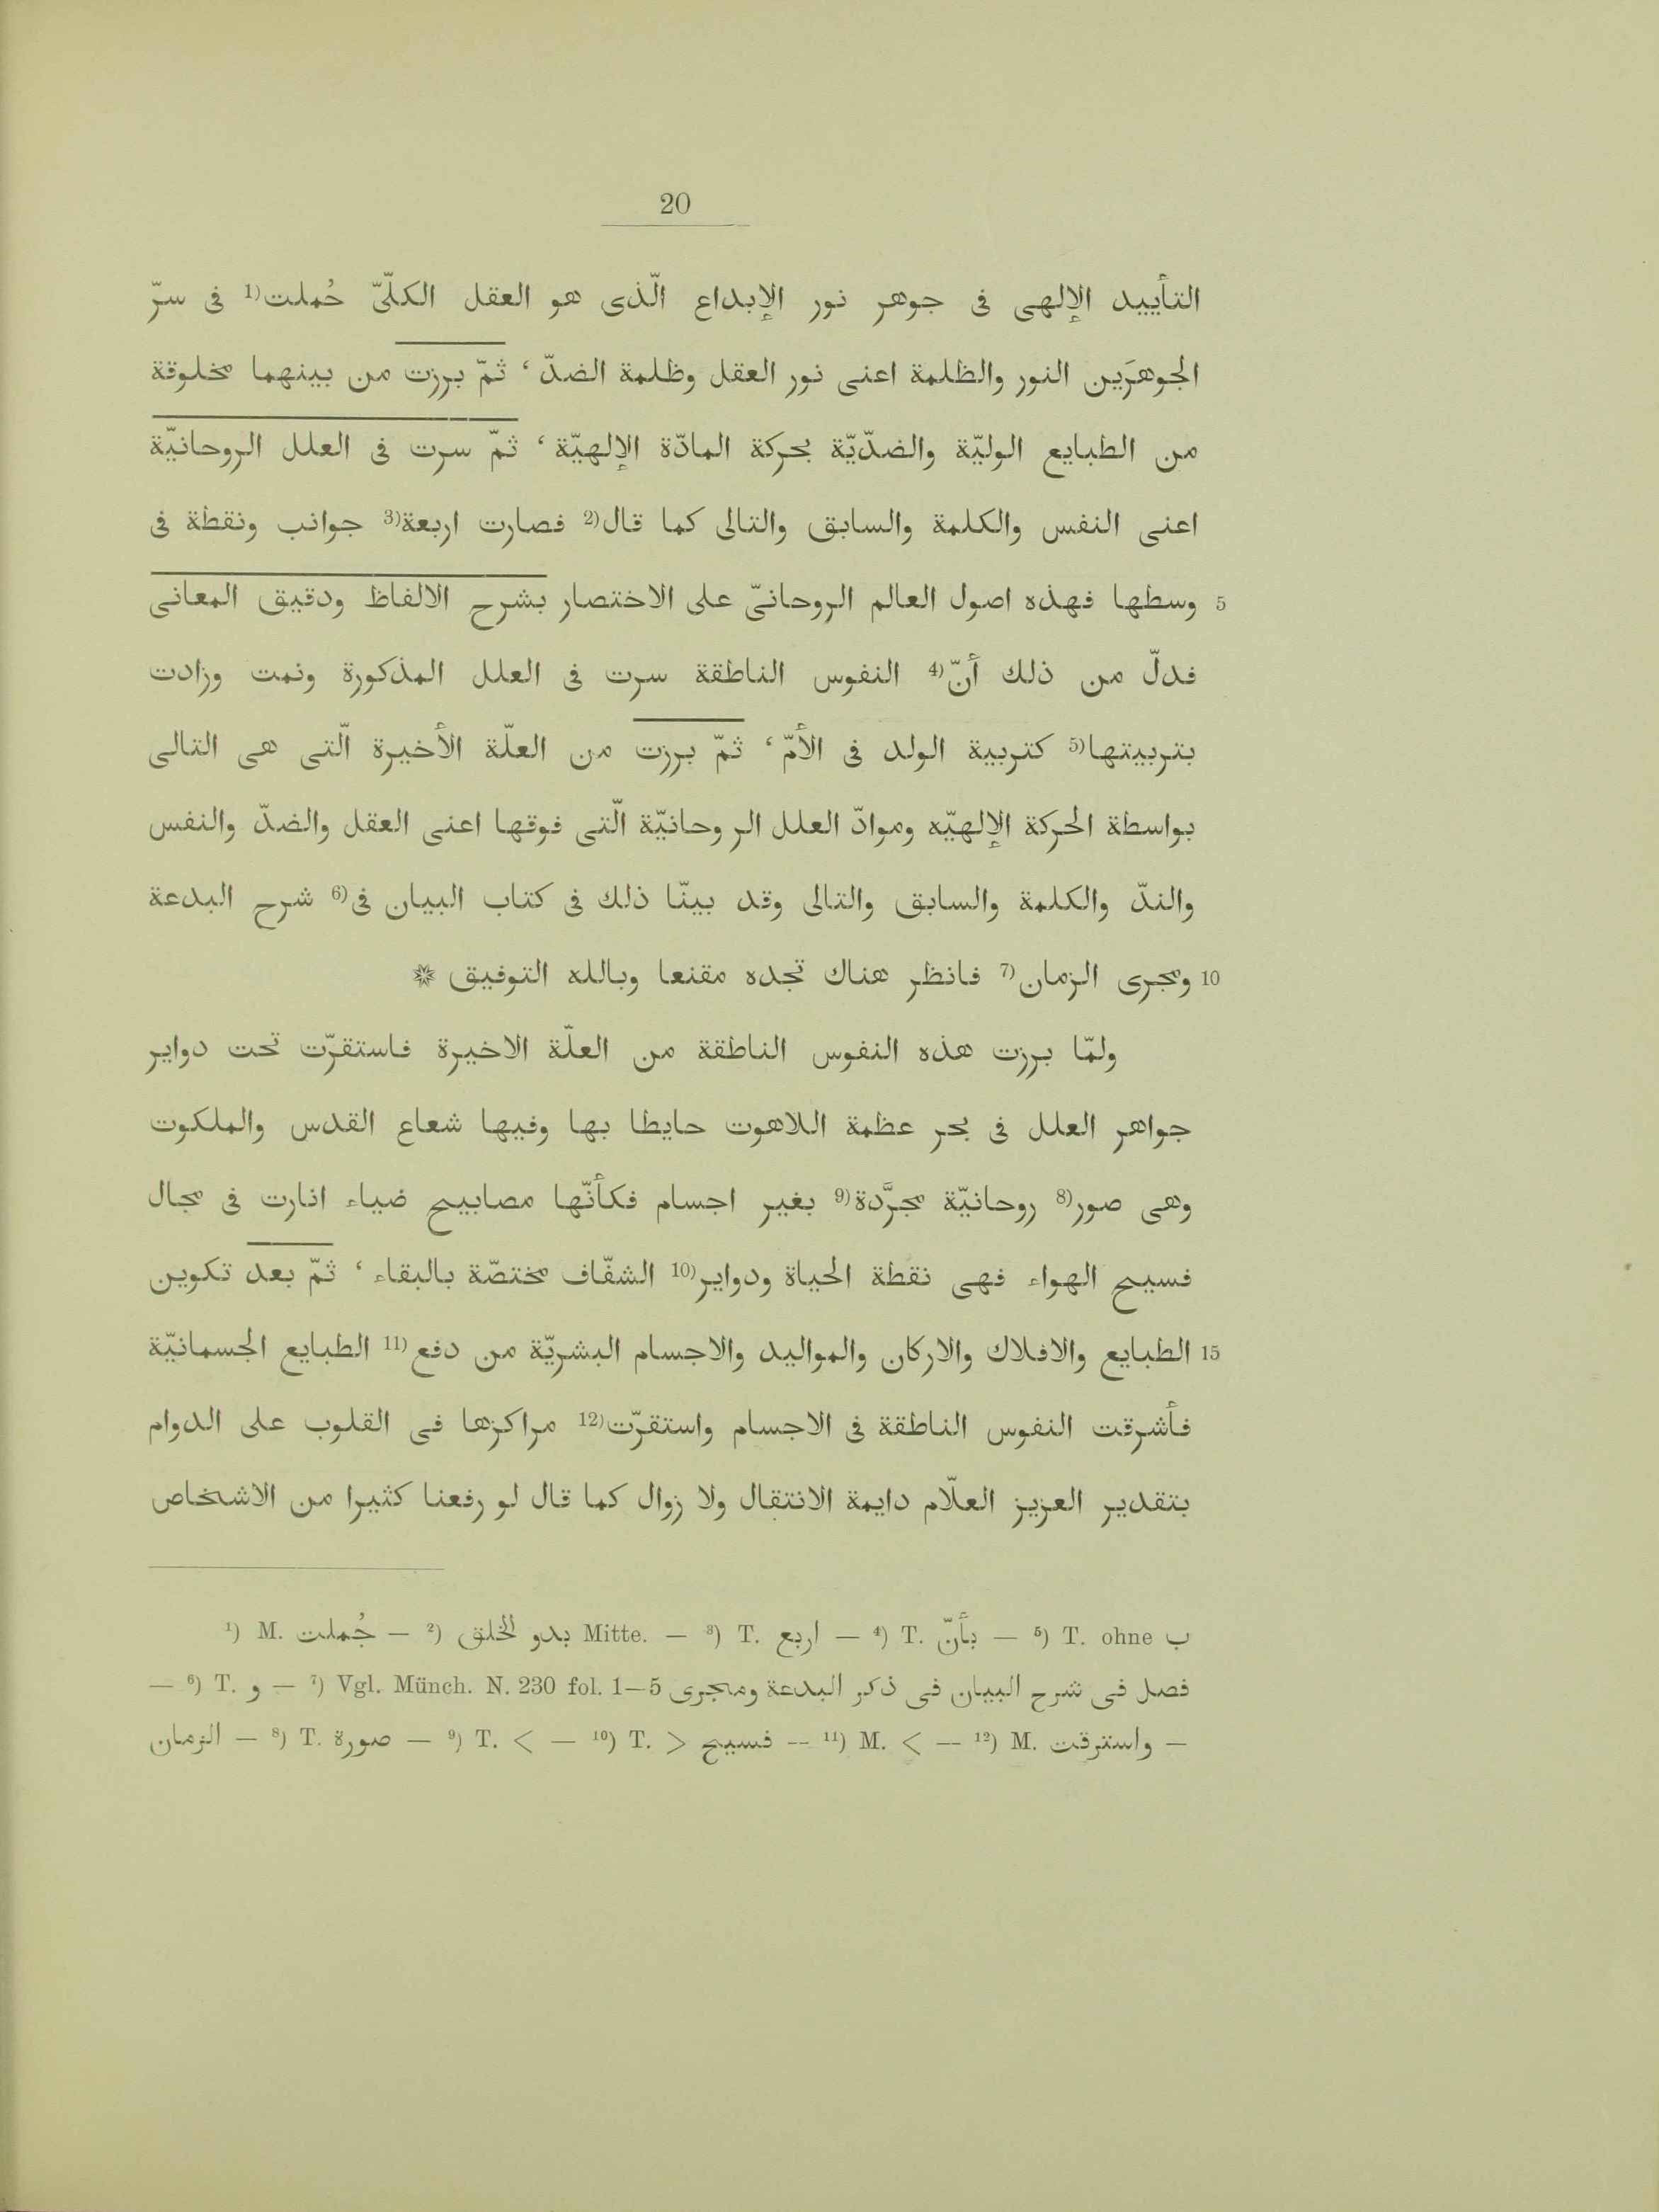 20
التأييد الإلهى فى جوهر نور الإبداع الّذى هو العقل الكلّىّ حُملت(1 فى سرّ
الجوهرَين النور والظلمة اعنى نور العقل وظلمة الضدّ، ثمّ برزت من بينهما مخلوقة
من الطبايع الوليّة والضدّيّة بحركة المادّة الإلهيّة، ثمّ سرت فى العلل الروحانيّة
اعنى النفس والكلمة والسابق والتالى كما قال(2 فصارت اربعة(3 جوانب ونقطة فى
5 وسطها فهذه اصول العالم الروحانىّ على الاختصار بشرح الالفاظ ودقيق المعانى
فدلّ من ذلك أنّ(4 النفوس الناطقة سرت فى العلل المذكورة ونمت وزادت
بتربيتها(5 كتربية الولد فى الأمّ، ثمّ برزت من العلّة الأخيرة الّتى هى التالى
بواسطة الحركة الإلهيّه وموادّ العلل الروحانيّة الّتى فوقها اعنى العقل والضدّ والنفس
والندّ والكلمة والسابق والتالى وقد بينّا ذلك فى كتاب البيان فى(6 شرح البدعة
10 ومجرى الزمان(7 فانظر هناك تجده مقنعا وبالله التوفيق *
ولمّا برزت هذه النفوس الناطقة من العلّة الاخيرة فاستقرّت تحت دواير
جواهر العلل فى بحر عظمة اللاهوت حايطا بها وفيها شعاع القدس والملكوت
وهى صور(8 روحانيّة مجرَّدة(9 بغير اجسام فكأنّها مصابيح ضياء انارت فى مجال
فسيح الهواء فهى نقطة الحياة ودواير(10 الشفّاف مختصّة بالبقاء، ثمّ بعد تكوين
15 الطبايع والافلاك والاركان والمواليد والاجسام البشريّة من دفع(11 الطبايع الجسمانيّة
فأشرقت النفوس الناطقة فى الاجسام واستقرّت(12 مراكزها فى القلوب على الدوام
بتقدير العزيز العلّام دايمة الانتقال ولا زوال كما قال لو رفعنا كثيرا من الاشخاص
¹) M. جُملت — ²) بدو الخلق Mitte. — ³) T. اربع — ⁴) T. بأنّ — ⁵) T. ohne ب
— ⁶) T. و — ⁷) Vgl. Münch. N. 230 fol. 1—5 فصل فى شرح البيان فى ذكر البدعة ومجرى
الزمان — ⁸) T. صورة — ⁹) T. < — ¹⁰) T. > فسيح -- ¹¹) M. < — ¹²) M. واسترقت —